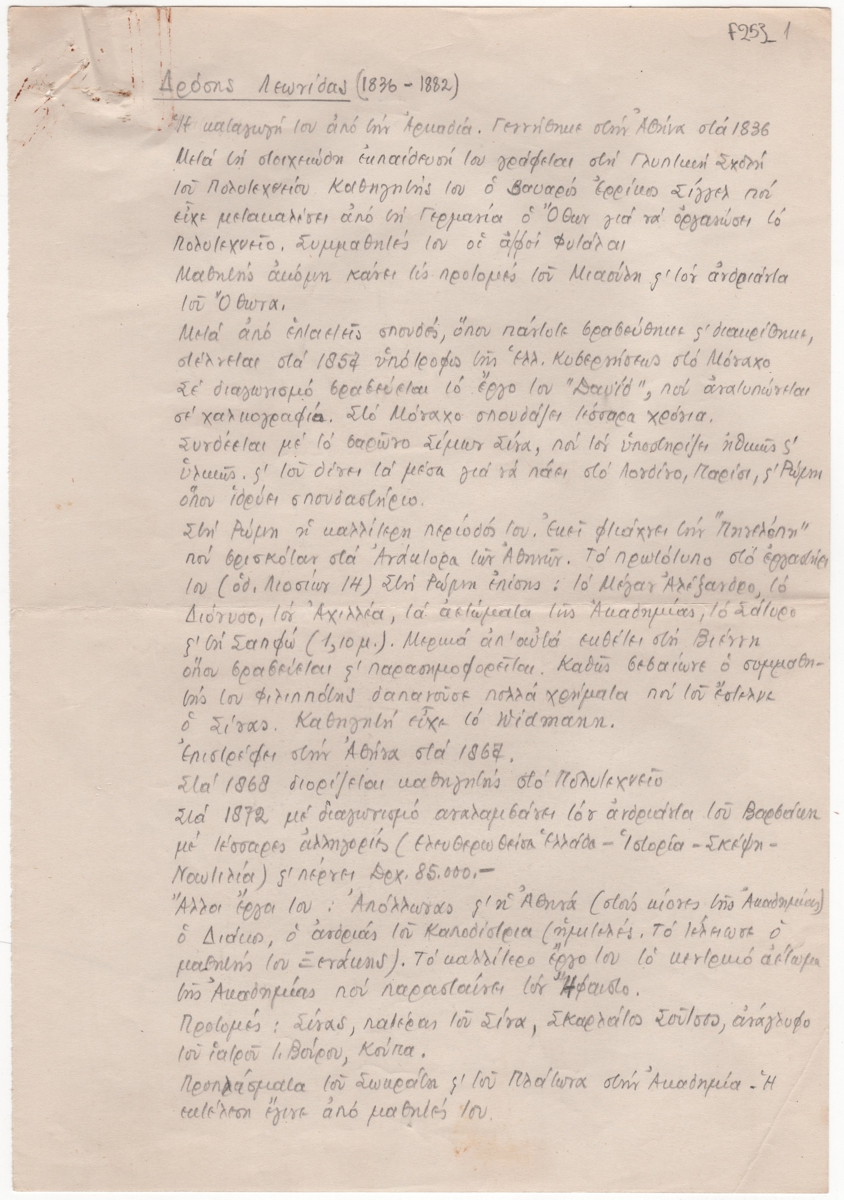 F253_1
Δρόσης Λεωνίδας (1836-1882)
Ἡ καταγωγή του ἀπό τήν Ἀρκαδία. Γεννήθηκε στήν Ἀθήνα στά 1836
Μετά τή στοιχειώδη ἐκπαίδευσή του γράφεται στή Γλυπτική Σχολή
τοῦ Πολυτεχνείου Καθηγητής του ὁ Βαυαρός Ἐρρίκος Σίγγελ πού
εἶχε μετακαλέσει ἀπό τή Γερμανία ὁ Ὄθων γιά νά ὀργανώσει τό
Πολυτεχνεῖο. Συμμαθητές του οἱ ἀ/φοί Φυτάλαι
Μαθητής ἀκόμη κάνει τίς προτομές τοῦ Μιαούλη ϛ' τόν ἀνδριάντα
τοῦ Ὄθωνα.
Μετά ἀπό ἑπταετεῖς σπουδές, ὅπου πάντοτε βραβεύθηκε ϛ' διακρίθηκε,
στέλνεται στά 1857 ὑπότροφος τῆς Ἑλλ. Κυβερνήσεως στό Μόναχο
Σέ διαγωνισμό βραβεύεται τό ἔργο του "Δαυΐδ", πού ἀνατυπώνεται
σέ χαλκογραφία. Στό Μόναχο σπουδάζει τέσσαρα χρόνια.
Συνδέεται μέ τό βαρῶνο Σίμων Σίνα, πού τόν ὑποστηρίζει ἠθικῶς ϛ'
ὑλικῶς. ϛ' τοῦ δίνει τά μέσα γιά νά πάει στό Λονδίνο, Παρίσι, ϛ' Ρώμη
ὅπου ἱδρύει σπουδαστήριο.
Στή Ρώμη ἡ καλλίτερη περίοδός του. Ἐκεῖ φτιάχνει τήν "Πηνελόπη"
πού βρισκόταν στά Ἀνάκτορα τῶν Ἀθηνῶν. Τό πρωτότυπο στό ἐργαστήρι
του (ὁδ. Λιοσίων 14) Στή Ρώμη ἐπίσης: τό Μέγαν Ἀλέξανδρο, τό
Διόνυσο, τόν Ἀχιλλέα, τά ἀετώματα τῆς Ἀκαδημίας, τό Σάτυρο
ϛ' τή Σαπφώ (1,10μ.). Μερικά ἀπ' αὐτά εκθέτει στή Βιέννη
ὅπου βραβεύεται ϛ' παρασημοφορεῖται. Καθώς βεβαίωνε ὁ συμμαθη-
τής του Φιλιππότης δαπανοῦσε πολλά χρήματα πού τοῦ ἔστελνε
ὁ Σίνας. Καθηγητή εἶχε τό Widmann.
Ἐπιστρέφει στήν Ἀθήνα στά 1867.
Στά 1868 διορίζεται καθηγητής στό Πολυτεχνεῖο
Στά 1872 μέ διαγωνισμό αναλαμβάνει τόν ἀνδριάντα τοῦ Βαρβάκη
μέ τέσσαρες ἀλληγορίες (Ελευθερωθεῖσα Ἑλλάδα - Ἱστορία - Σκέψη-
Ναυτιλία) ϛ' πέρνει Δρχ. 85.000.-
Ἄλλα ἔργα του: Ἀπόλλωνας ϛ' ἡ Ἀθηνᾶ (στούς κίονες τῆς Ἀκαδημίας)
ὁ Διάκος, ὁ ἀνδριάς τοῦ Καποδίστρια (ἡμιτελές. Τό τέλειωσε ὁ
μαθητής του Ξενάκης). Τό καλλίτερο ἔργο του τό κεντρικό ἀέτωμα
τῆς Ἀκαδημίας πού παρασταίνει τόν Ἥφαιστο.
Προτομές: Σίνας, πατέρας τοῦ Σίνα, Σκαρλάτος Σοῦτσος, ἀνάγλυφο
τοῦ ἰατροῦ Ι. Βούρου, Κούπα.
Προπλάσματα τοῦ Σωκράτη ϛ' τοῦ Πλάτωνα στήν Ἀκαδημία - Ἡ
εκτέλεση ἔγινε ἀπό μαθητές του.